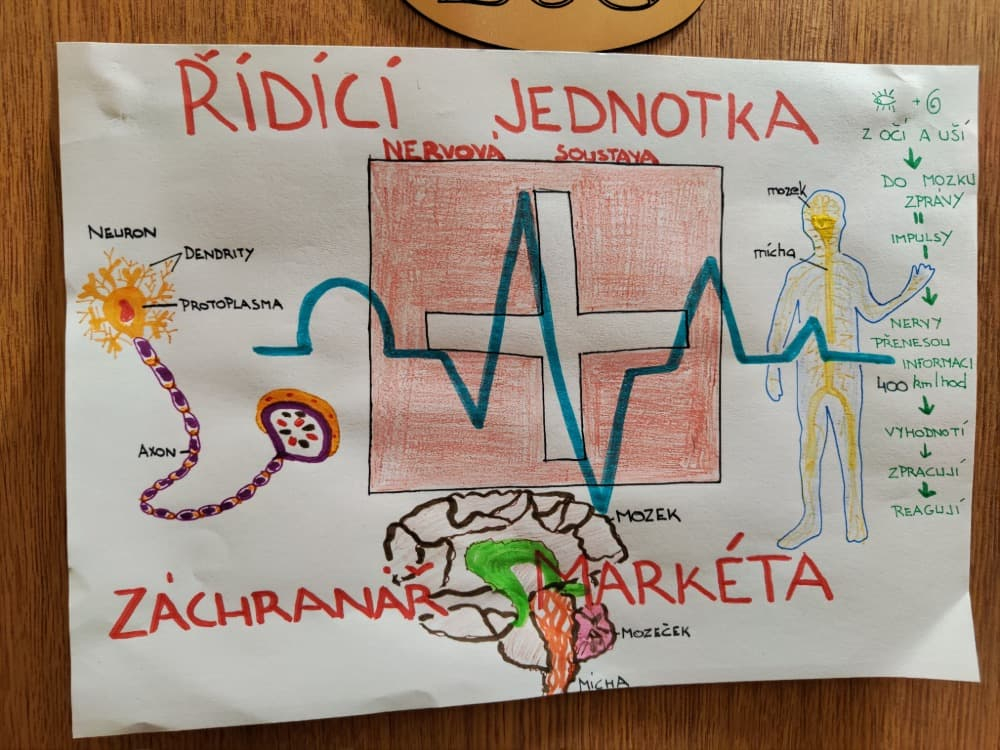 ŘÍDÍCÍ JEDNOTKA
NERVOVÁ SOUSTAVA
NEURON
DENDRITY
PROTOPLASMA
AXON
mozek
mícha
+6
Z OČÍ A UŠÍ
DO MOZKU
ZPRÁVY
IMPULSY
NERVY
PŘENESOU
INFORMACI
400 km/hod
VYHODNOTÍ
ZPRACUJÍ
REAGUJÍ
MOZEK
ZÁCHRANÁŘ MARKÉTA
MOZEČEK
MÍCHA